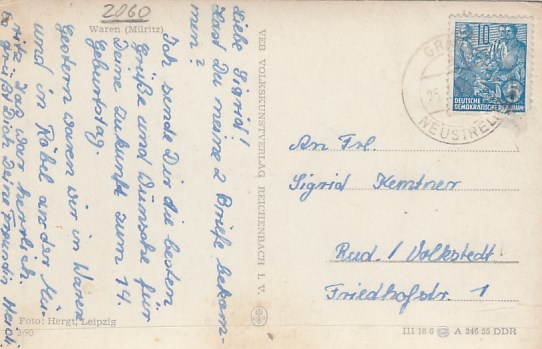 2060
Waren (Müritz)
Liebe Sigrid!
Hast Du meine 2 Briefe bekom-
men?
Ich sende Dir die besten
Grüße und Wünsche für
Deine Zukunft zum 14.
Geburtstag.
Gestern waren wir in Waren
und in Röbel an der Mü-
ritz. Das war herrlich.
Es grüßt Dich Deine Freundin Heidi
Foto: Hergt, Leipzig
VEB VOLKSKUNSTVERLAG REICHENBACH I. V.
DEUTSCHE
DEMOKRATISCHE REPUBLIK
10
5
25
NEUSTREL
An Frl.
Sigrid Kemtner
Rud. / Volkstedt
Friedhofstr. 1
III 18 6 A 246 55 DDR